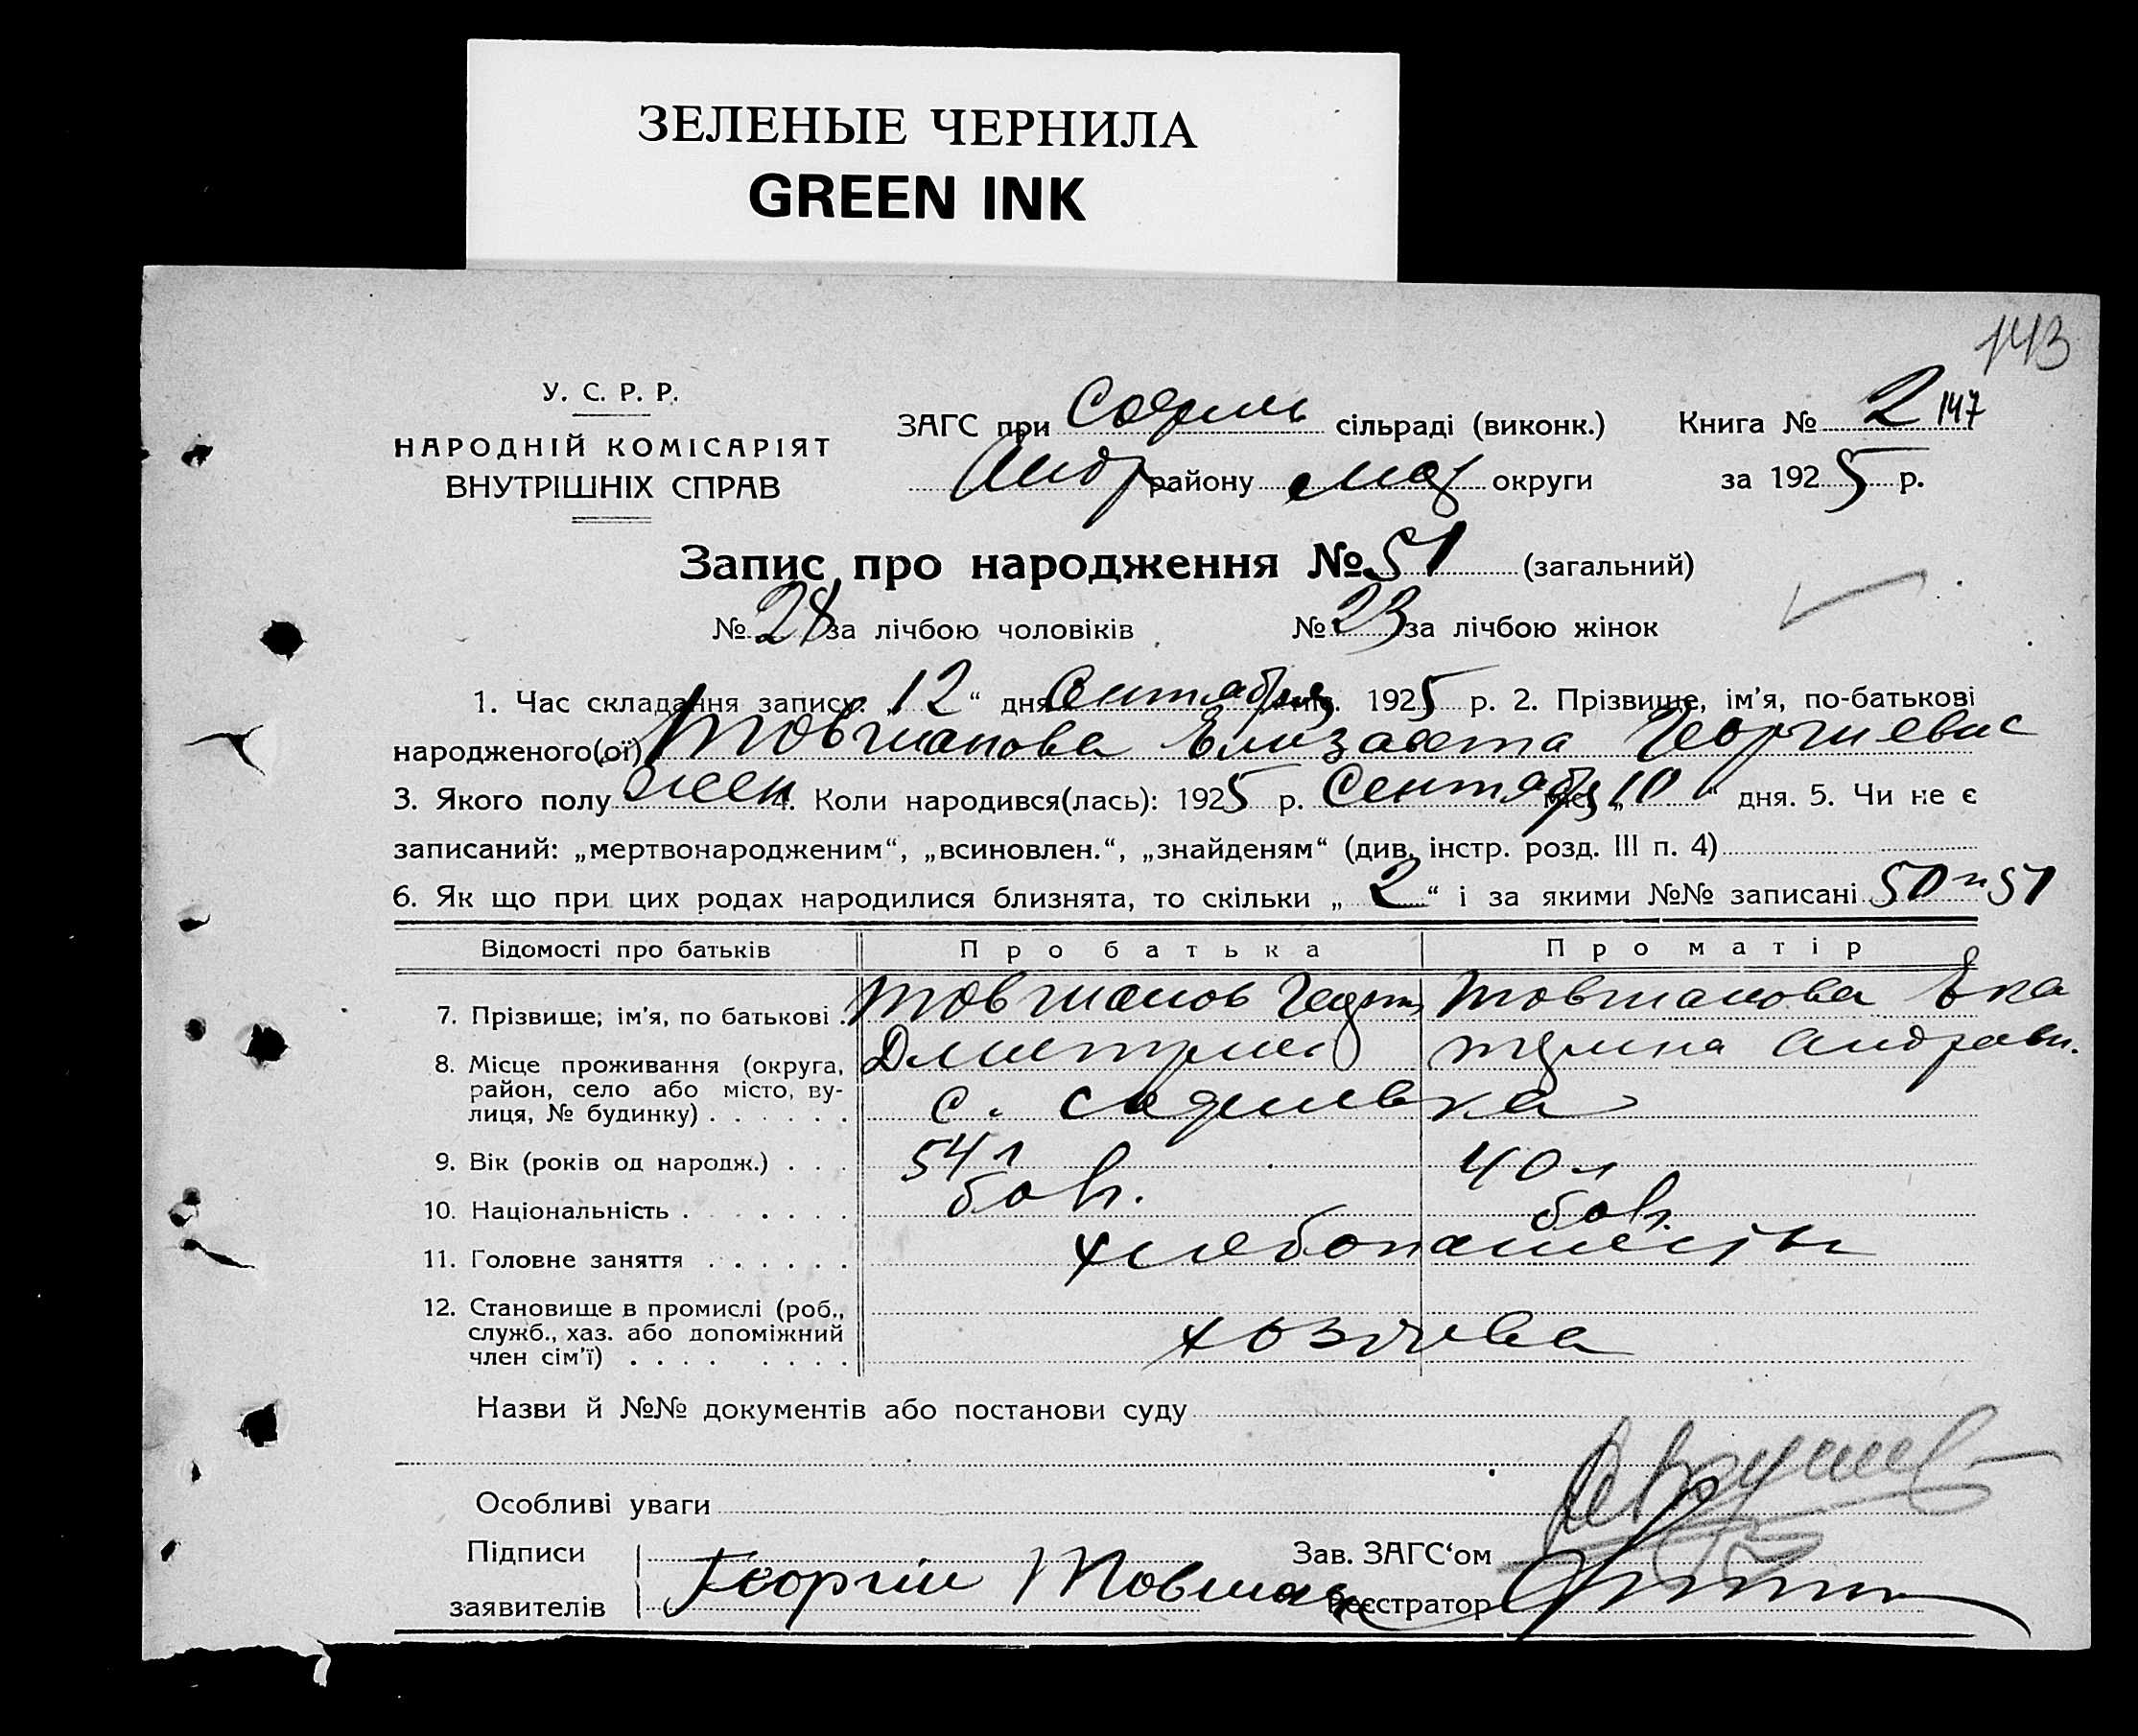 ЗЕЛЕНЫЕ ЧЕРНИЛА
GREEN INK
143
У. С. Р. Р.
НАРОДНІЙ КОМІСАРІЯТ
ВНУТРІШНІХ СПРАВ
ЗАГС при Софиев сільраді (виконк.) Книга № 2 147
Андр району Мар округи за 1925 р.
Запис про народження № 51 (загальний)
№ 28 за лічбою чоловіків № 23 за лічбою жінок
1. Час складання запису: „12“ дня Сентября міс. 1925 р. 2. Прізвище, ім'я, по-батькові
народженого(ої) Товшанова Елизавета Георгиевн
3. Якого полу жен 4. Коли народився(лась): 1925 р. Сентября міс. „10“ дня. 5. Чи не є
записаний: „мертвонародженим“, „всиновлен.“, „знайденям“ (див. інстр. розд. III п. 4)
6. Як що при цих родах народилися близнята, то скільки „2“ і за якими №№ записані 50 и 51
Відомості про батьків Про батька Про матір
7. Прізвище; ім'я, по батькові . Товшанов Георги Товшанова Ека
Дмитриев терина Андреевн.
8. Місце проживання (округа,
район, село або місто, ву-
лиця, № будинку) . . . . . . с. Софиевка
9. Вік (років од народж.) . . . 54 л 40 л
10. Національність . . . . . . болг. болг.
11. Головне заняття . . . . . . хлебопашество
12. Становище в промислі (роб.,
служб., хаз. або допоміжний
член сім'ї) . . . . . . . . хозяева
Назви й №№ документів або постанови суду
Особливі уваги
Підписи
заявителів Георгий Товшан
Зав. ЗАГС'ом
Реєстратор